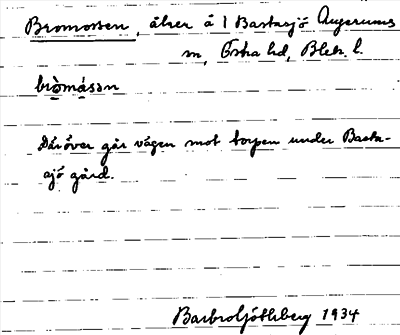 Bromossen, åker å 1 Bastasjö Augerums
sn, Östra hd, Blek. l.
bròmåsən
Däröver går vägen mot torpen under Basta-
sjö gård.
Barbro Götlberg 1934